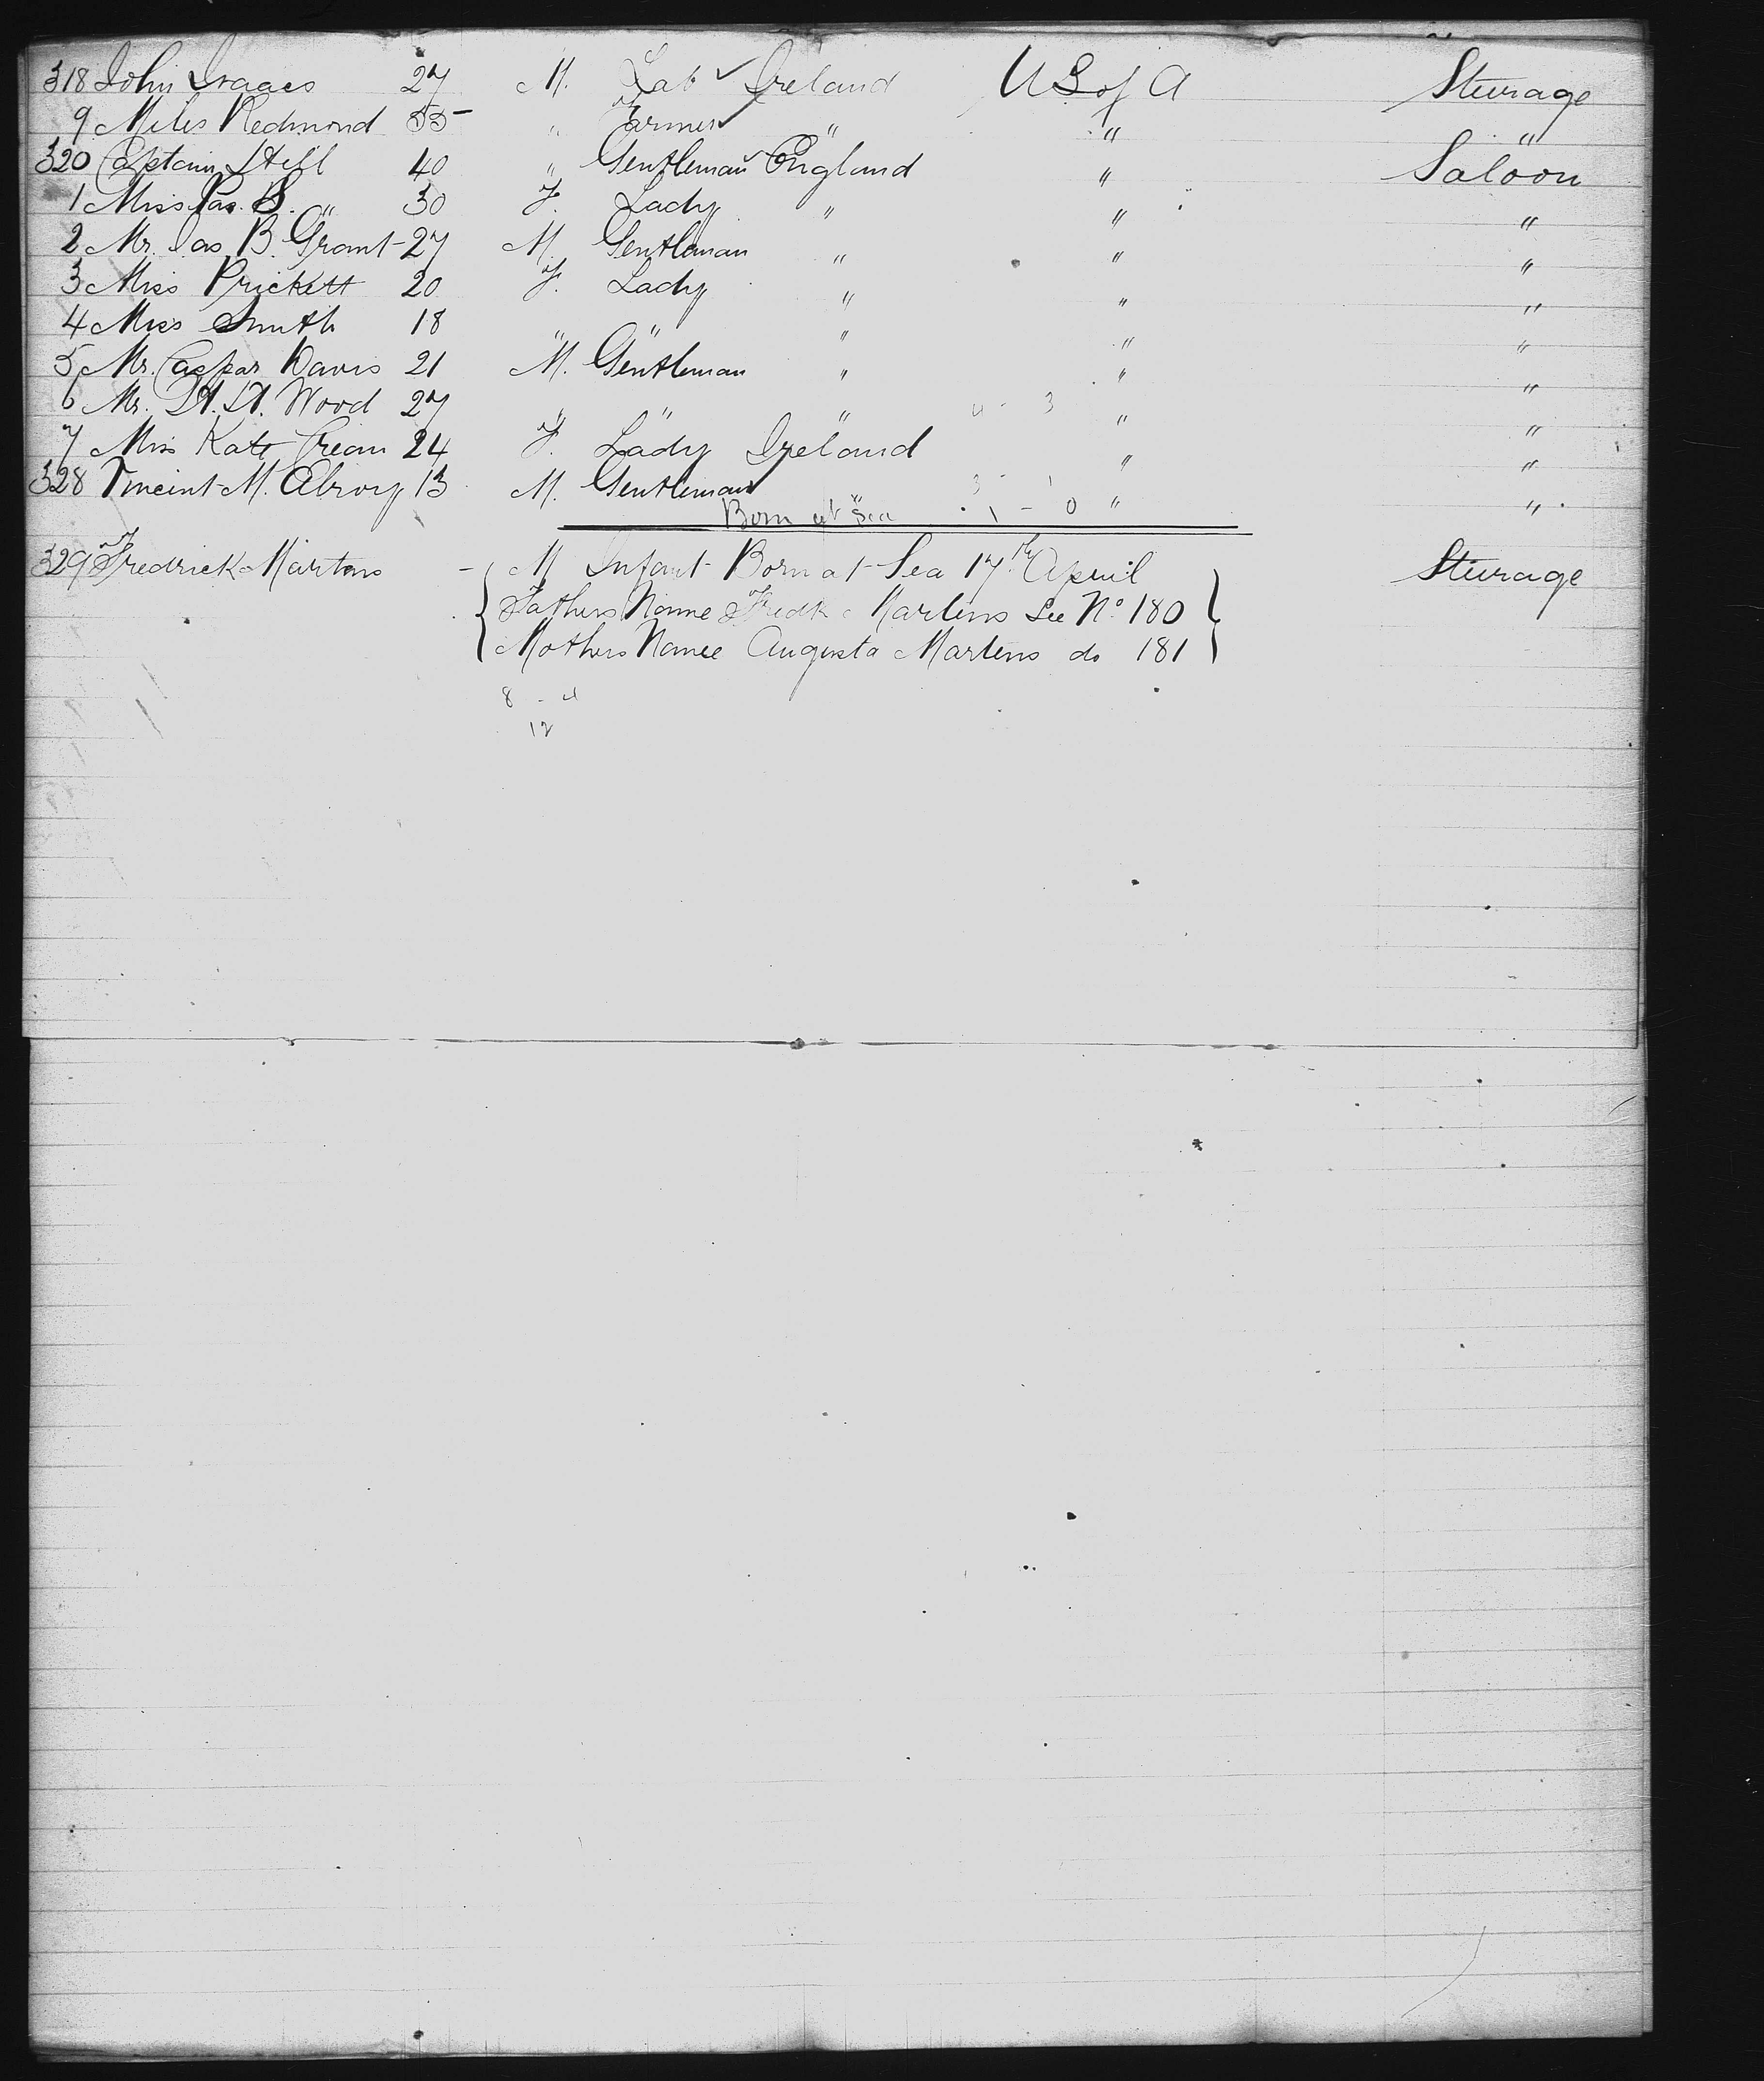 318 John Isaacs 27 M. Lab ✓ Ireland U S of A Steerage
9 Miles Redmond 55 " Farmer " " "
320 Captain Hill 40 " Gentleman England " Saloon
1 Miss Jas. B. " 30 F. Lady " " "
2 Mr. Jas B. Grant 27 M. Gentleman " " "
3 Miss Prickett 20 F. Lady " " "
4 Miss Smith 18 " " " " "
5 Mr. Caspar Davis 21 M. Gentleman " " "
6 Mr. H. H. Wood 27 " " " " "
7 Miss Kate Crean 24 F. Lady Ireland " "
328 Vincent M. 13 M. Gentleman " " "
Born at Sea 1 - 0
329 Fredrick Martens - M Infant Born at Sea 17th April Steerage
Fathers Name Fredk Martens See No. 180
Mothers Name Augusta Martens do 181
8 - 4
12